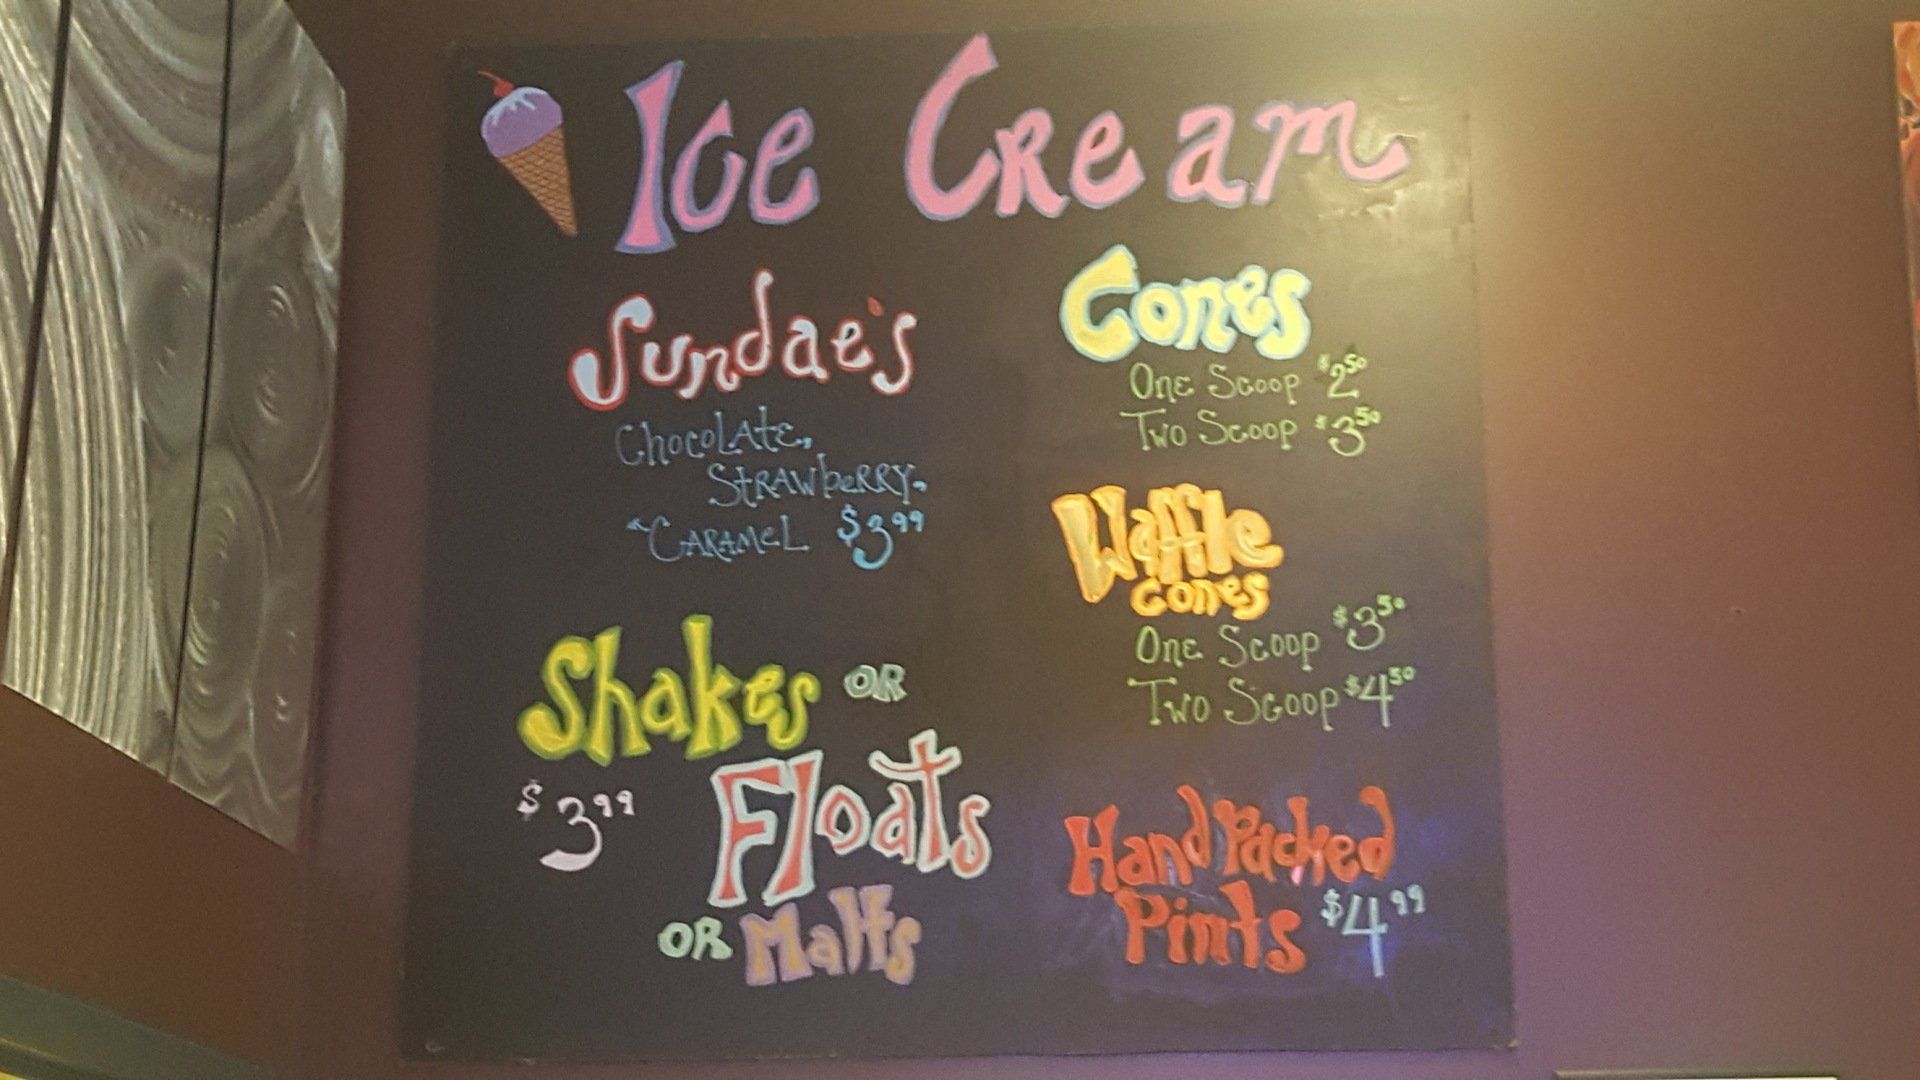 Ice Cream
Sundae's
Chocolate,
Strawberry,
Caramel $3.99
Shakes or
$3.99
Floats
or Malts
Cones
One Scoop $2.50
Two Scoop $3.50
Waffle
Cones
One Scoop $3.50
Two Scoop $4.50
Hand Packed
Pints $4.99